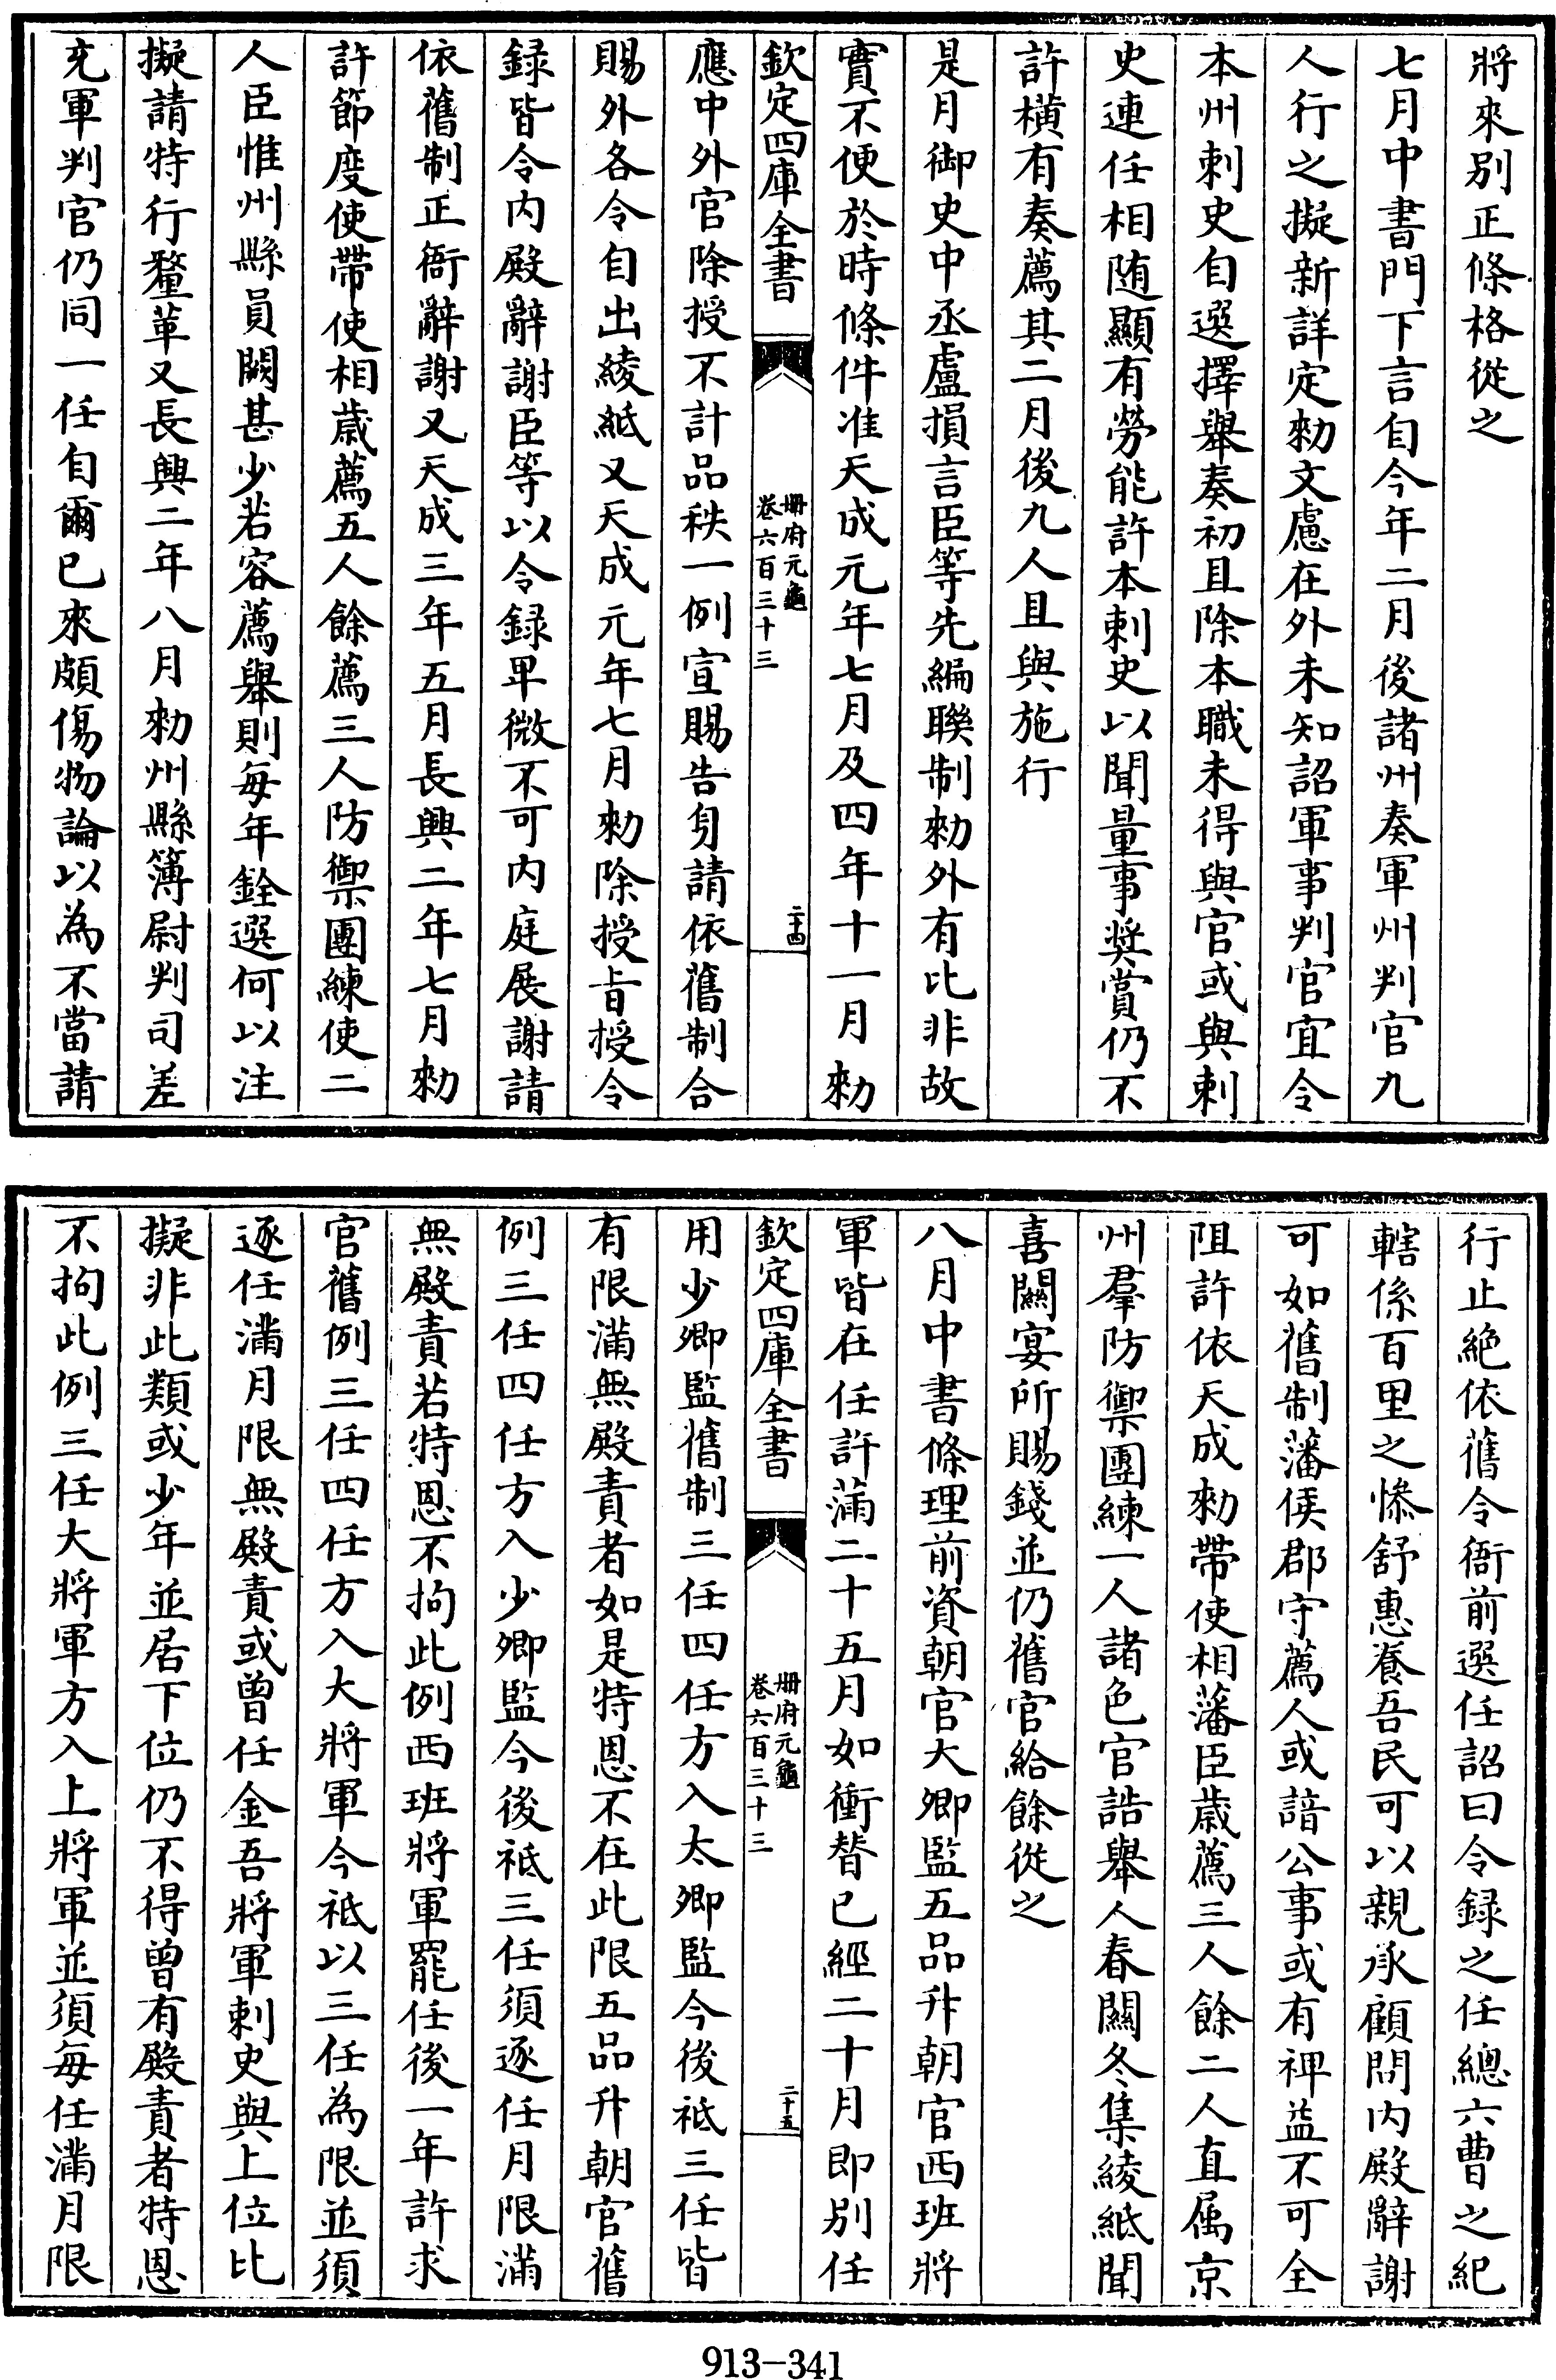 將來别正條格從之
七月中書門下言自今年二月後諸州奏軍州判官九
人行之擬新詳定勑文慮在外未知詔軍事判官宜令
本州刺史自選擇舉奏初且除本職未得與官或與刺
史連任相随顯有勞能許本刺史以聞量事奬賞仍不
許橫有奏薦其二月後九人且與施行
是月御史中丞盧損言臣等先編聯制勑外有比非故
實不便於時條件准天成元年七月及四年十一月勑
欽定四庫全書
冊府元龜
卷六百三十三
二十四
應中外官除授不計品秩一例宣賜告身請依舊制合
賜外各令自出綾紙又天成元年七月勑除授㫖授令
録皆令内殿辭謝臣等以令録卑微不可内庭展謝請
依舊制正衙辭謝又天成三年五月長興二年七月勑
許節度使帶使相歲薦五人餘薦三人防禦團練使二
人臣惟州縣員闕甚少若容薦舉則毎年銓選何以注
擬請特行釐革又長興二年八月勑州縣簿尉判司差
充軍判官仍同一任自爾已來頗傷物論以為不當請
行止絶依舊令衙前選任詔曰令録之任總六曹之紀
轄係百里之慘舒惠養吾民可以親承顧問内殿辭謝
可如舊制藩侯郡守薦人或諳公事或有裨益不可全
阻許依天成勑帶使相藩臣歲薦三人餘二人直属京
州羣防禦團練一人諸色官誥舉人春闗冬集綾紙聞
喜闗宴所賜錢並仍舊官給餘從之
八月中書條理前資朝官大卿監五品升朝官西班將
軍皆在任許滿二十五月如衝替已經二十月即别任
欽定四庫全書
冊府元龜
卷六百三十三
二十五
用少卿監舊制三任四任方入太卿監今後祗三任皆
有限滿無殿責者如是特恩不在此限五品升朝官舊
例三任四任方入少卿監今後祗三任須逐任月限滿
無殿責若特恩不拘此例西班將軍罷任後一年許求
官舊例三任四任方入大將軍今祗以三任為限並須
逐任滿月限無殿責或曾任金吾將軍刺史與上位比
擬非此類或少年並居下位仍不得曾有殿責者特恩
不拘此例三任大將軍方入上將軍並須毎任滿月限
913-341